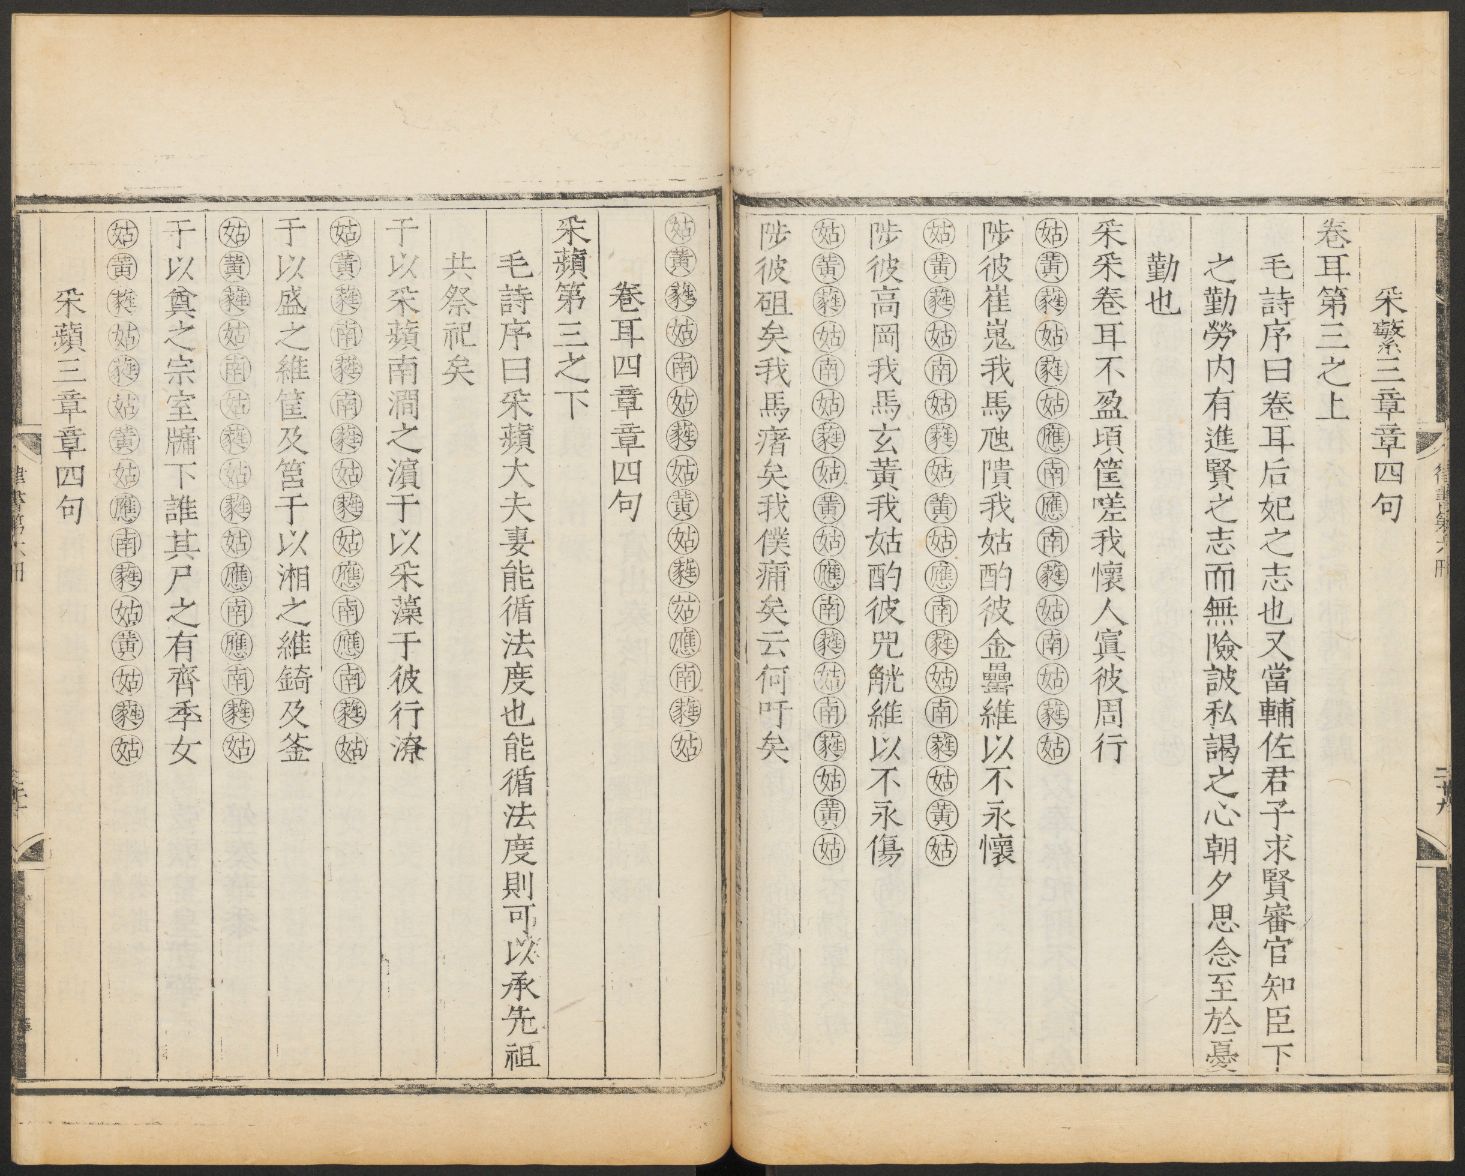 采繁三章章四句
卷耳第三之上
毛詩序曰卷耳后妃之志也又當輔佐君子求賢審官知臣下
之勤勞内有進賢之志而無險詖私謁之心朝夕思念至於憂
勤也
采采卷耳不盈頃筐嗟我懷人寘彼周行
姑黃蕤姑蕤姑應南應南蕤姑南姑蕤姑
陟彼崔嵬我馬虺隤我姑酌彼金罍維以不永懷
姑黃蕤姑南姑蕤姑黃姑應南蕤姑南蕤姑黃姑
陟彼高岡我馬玄黃我姑酌彼兕觥維以不永傷
姑黃蕤姑南姑蕤姑黃姑應南蕤姑南蕤姑黃姑
陟彼砠矣我馬瘏矣我僕痡矣云何吁矣
姑黃蕤姑南姑蕤姑黃姑蕤姑應南蕤姑
卷耳四章章四句
采蘋第三之下
毛詩序曰采蘋大夫妻能循法度也能循法度則可以承先祖
共祭祀矣
于以采蘋南澗之濱于以采藻于彼行潦
姑黃蕤南蕤南蕤姑蕤姑應南應南蕤姑
于以盛之維筐及筥于以湘之維錡及釜
姑黃蕤姑南姑蕤姑蕤姑應南應南蕤姑
于以奠之宗室牖下誰其尸之有齊季女
姑黃蕤姑蕤姑黃姑應南蕤姑黃姑蕤姑
采蘋三章章四句